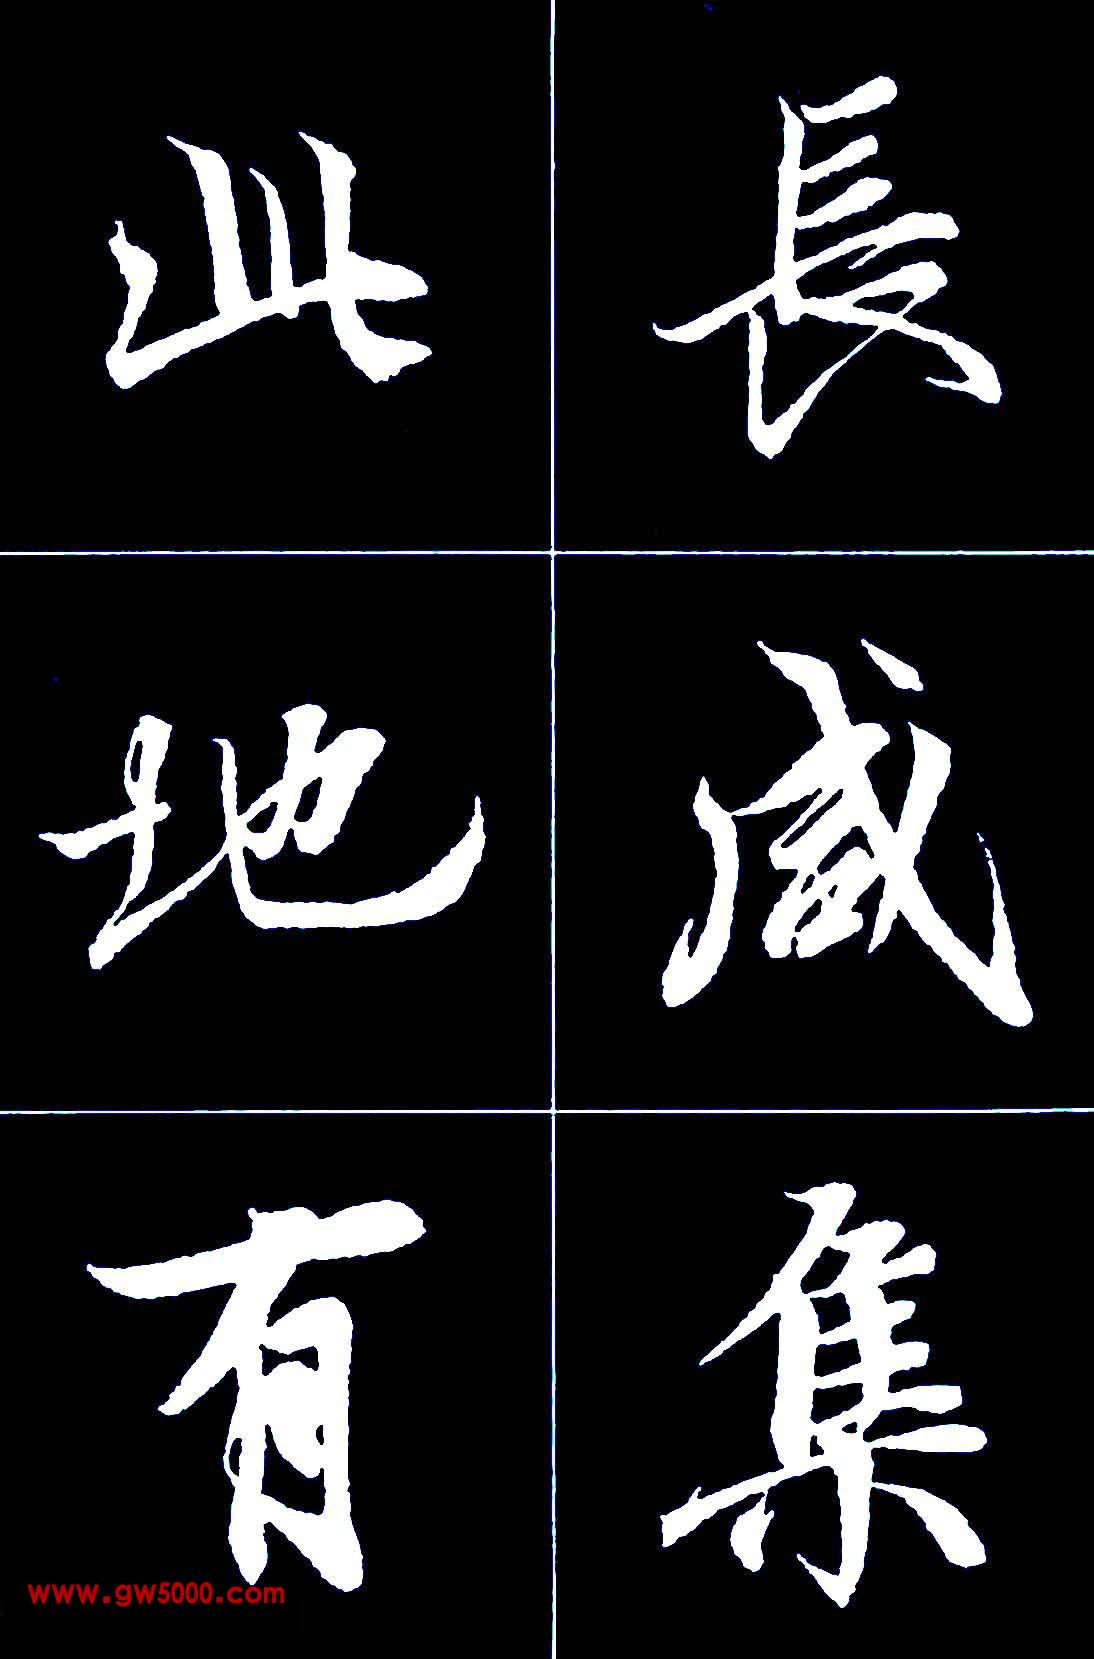 長咸集
此地有
www.gw5000.com